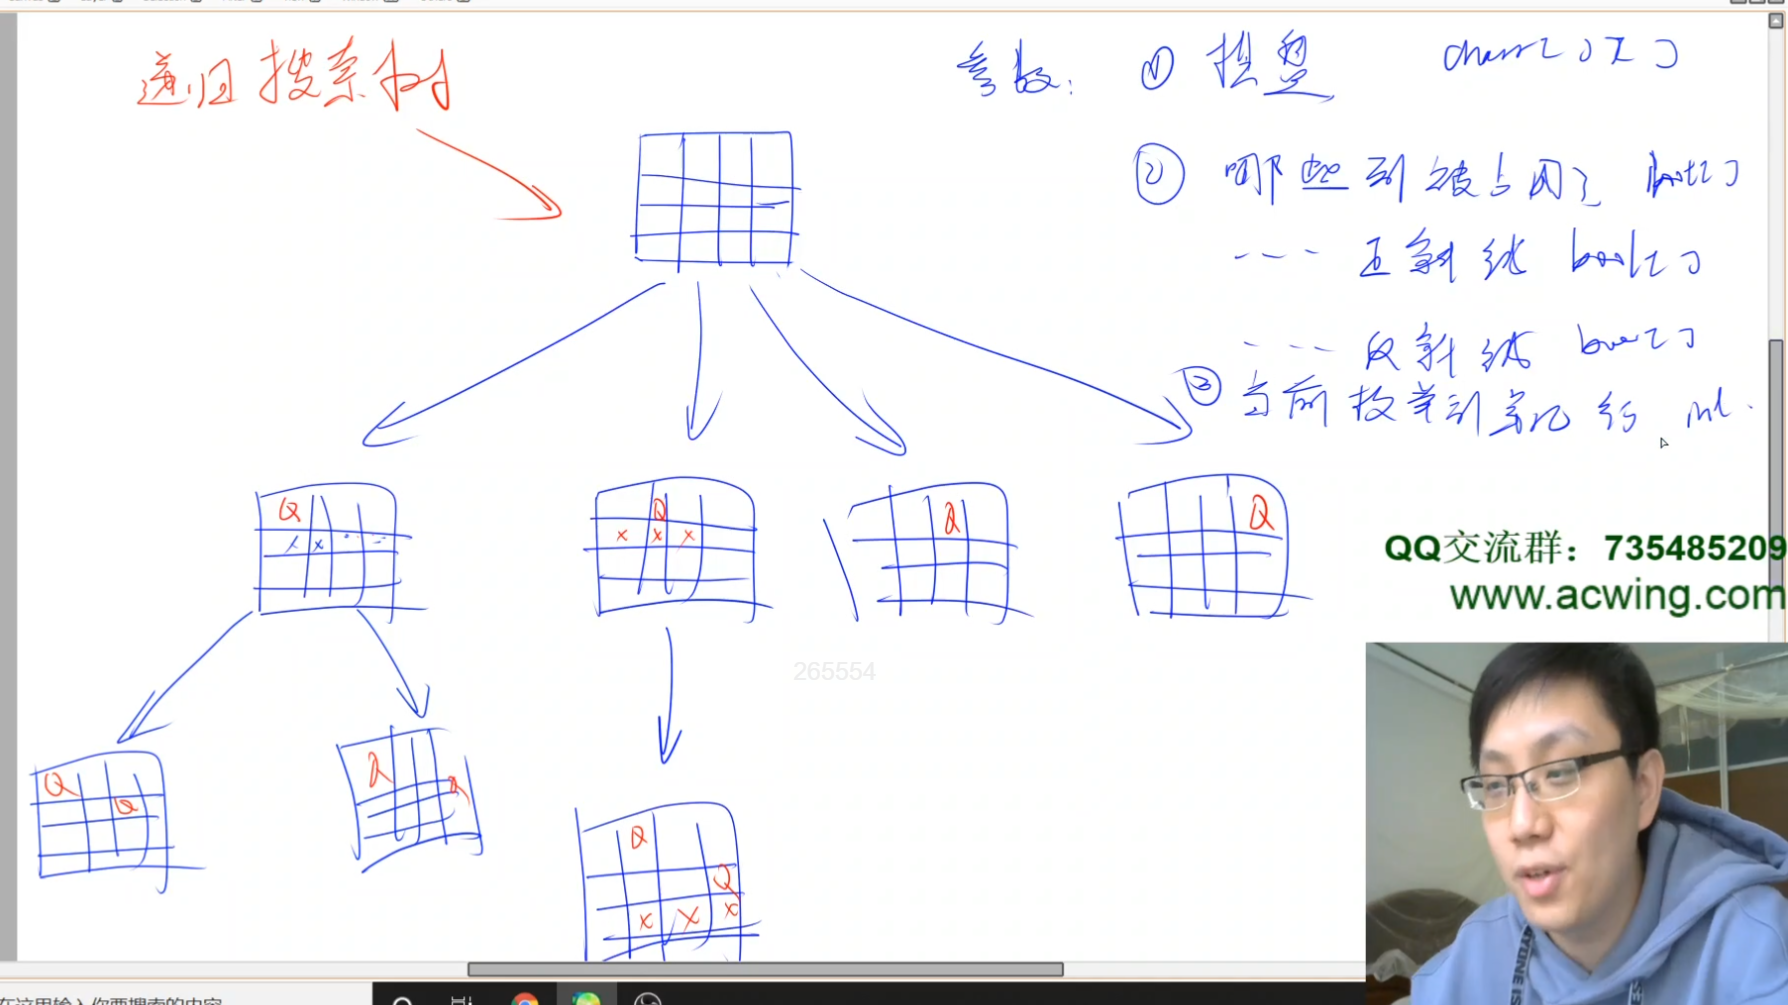 递归搜索树
参数: ① 棋盘 char[][]
② 哪些列被占用了 bool[]
--- 正斜线 bool[]
--- 反斜线 bool[]
③ 当前枚举到第几行 int.
Q
Q
Q
Q
x x
x x x
QQ交流群：735485209
www.acwing.com
265554
Q
Q
Q
Q
Q
Q
x x x
在这里输入你要搜索的内容